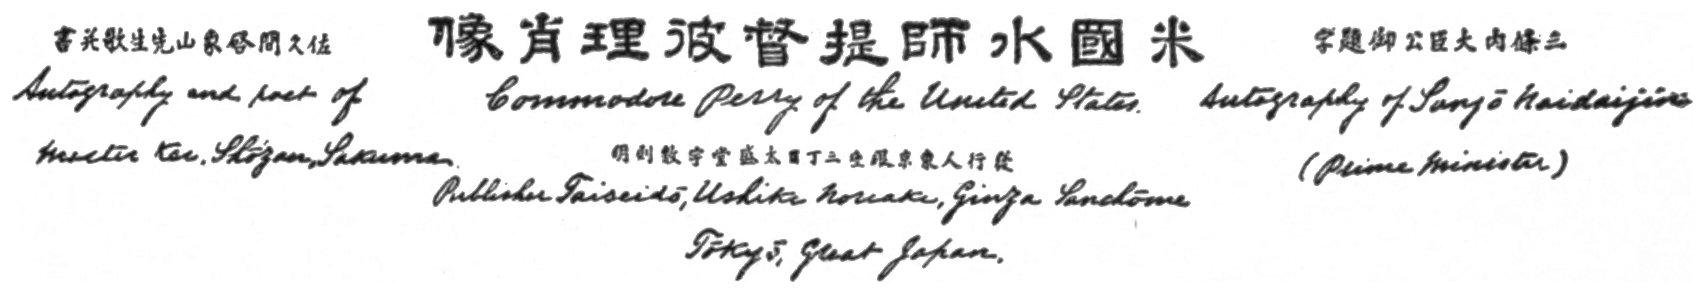 佐久間啓象山先生歌并書
Autography and poet of
Master Kei, Shōzan, Sakuma.
米國水師提督彼理肖像
Commodore Perry of the United States.
發行人東京銀座三丁目太盛堂宇敷則明
Publisher Taiseidō, Ushiki Noriake, Ginza Sanchōme
Tōkyō, Great Japan.
三條内大臣公御題字
Autography of Sanjō Naidaijin
(Prime Minister)